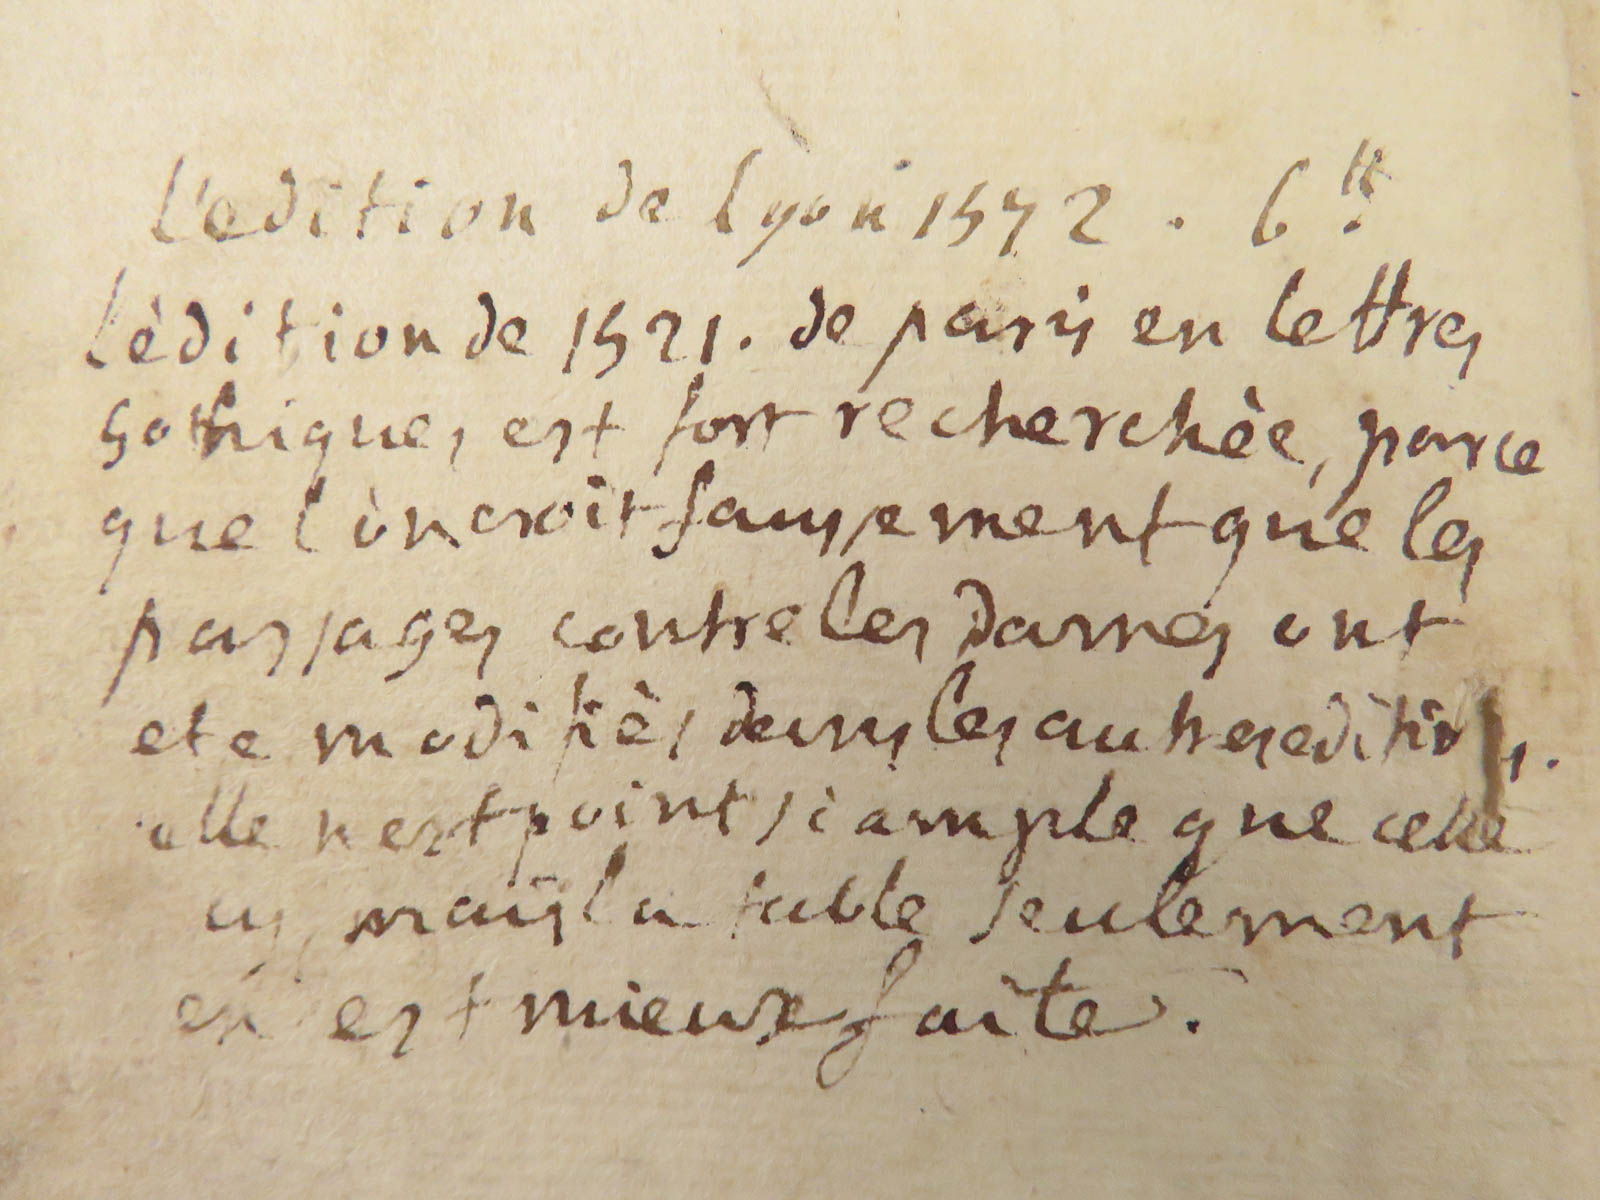 L'edition de Lyon 1572. 6 ₶.
L'èdition de 1521. de paris en lettres
Gothiques est fort recherchèe, parce
que l'òn croìt faussement que les
passages contre les Dames ont
ete modifiès dans les autres editions.
elle nest point si ample que celle
cy, mais la table seulement
en est mieux faite.